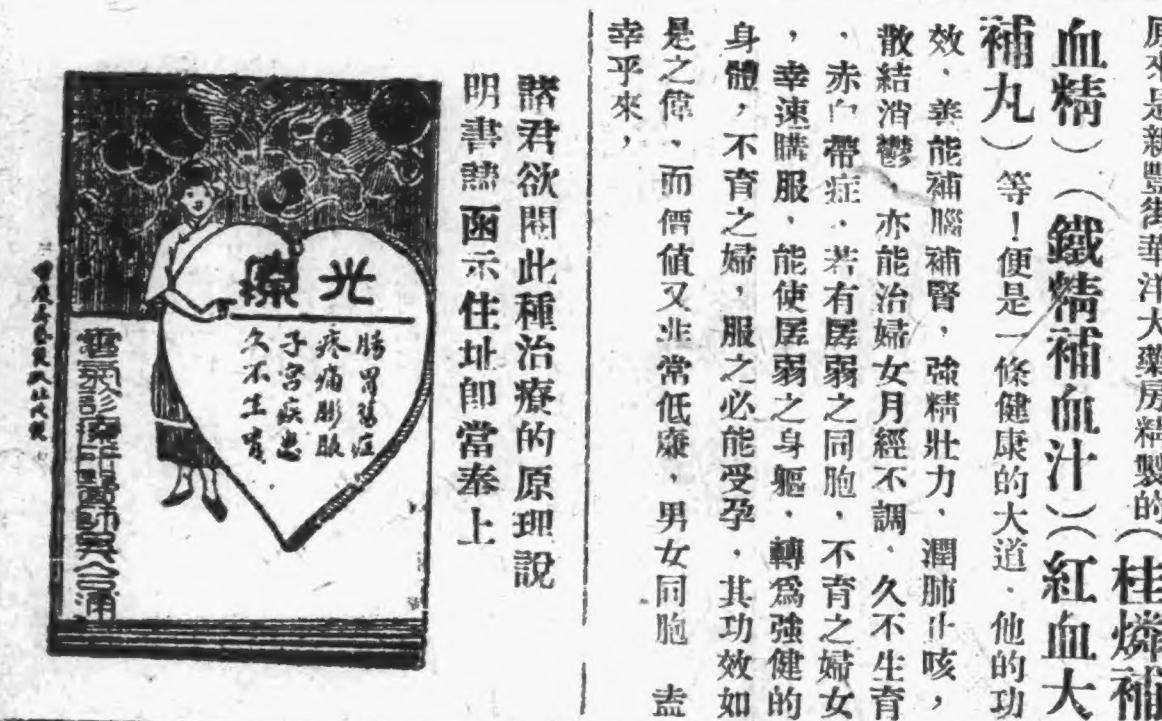 原來是新豐街華洋大藥房精製的(桂燐補
血精)(鐵精補血汁)(紅血大
補丸)等!便是一條健康的大道、他的功
效、善能補腦補腎,強精壯力、潤肺止咳,
散結消鬱、亦能治婦女月經不調、久不生育
、赤白帶症、若有孱弱之同胞、不育之婦女
,幸速購服、能使孱弱之身軀、轉爲強健的
身體,不育之婦,服之必能受孕、其功效如
是之偉、而價値又非常低廉、男女同胞 盍
幸乎來,
諸君欲閱此種治療的原理說
明書請函示住址卽當奉上
光療
腸胃
疼痛膨脹
子宮疾患
久不生育
電氣診療所醫師吳